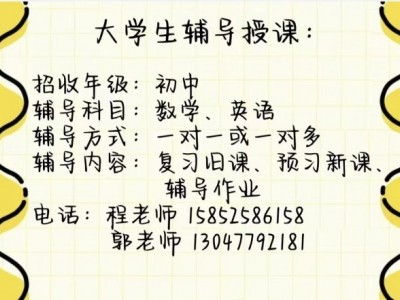 大学生辅导授课：
招收年级：初中
辅导科目：数学、英语
辅导方式：一对一或一对多
辅导内容：复习旧课、预习新课、
辅导作业
电话：程老师 15852586158
郭老师 13047792181